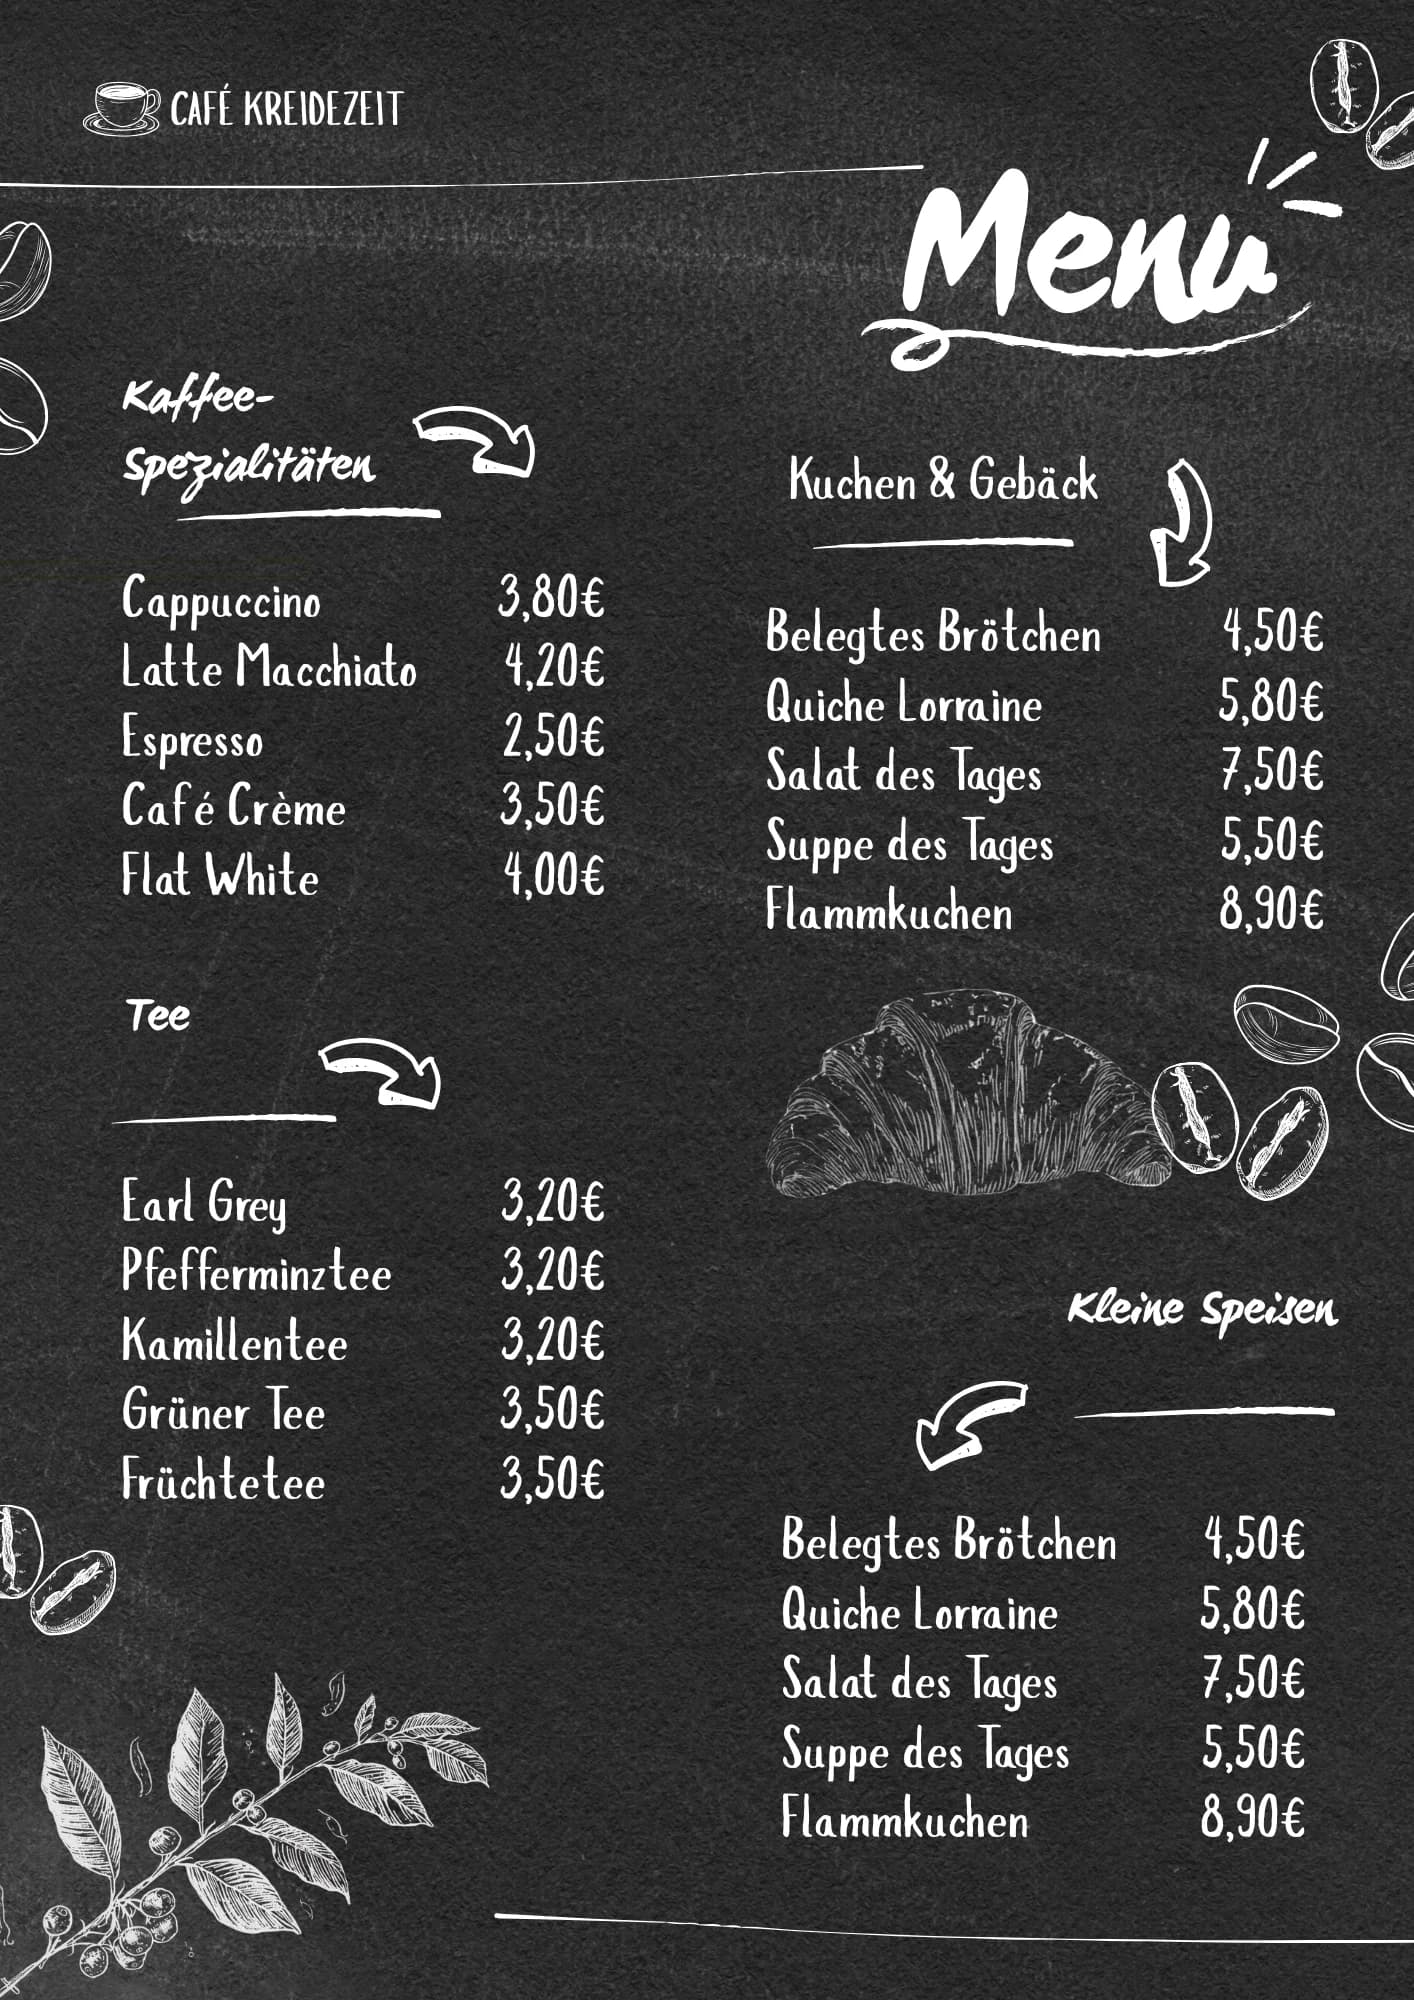 CAFÉ KREIDEZEIT
Menu
Kaffee-
Spezialitäten
Cappuccino 3,80€
Latte Macchiato 4,20€
Espresso 2,50€
Café Crème 3,50€
Flat White 4,00€
Tee
Earl Grey 3,20€
Pfefferminztee 3,20€
Kamillentee 3,20€
Grüner Tee 3,50€
Früchtetee 3,50€
Kuchen & Gebäck
Belegtes Brötchen 4,50€
Quiche Lorraine 5,80€
Salat des Tages 7,50€
Suppe des Tages 5,50€
Flammkuchen 8,90€
Kleine Speisen
Belegtes Brötchen 4,50€
Quiche Lorraine 5,80€
Salat des Tages 7,50€
Suppe des Tages 5,50€
Flammkuchen 8,90€